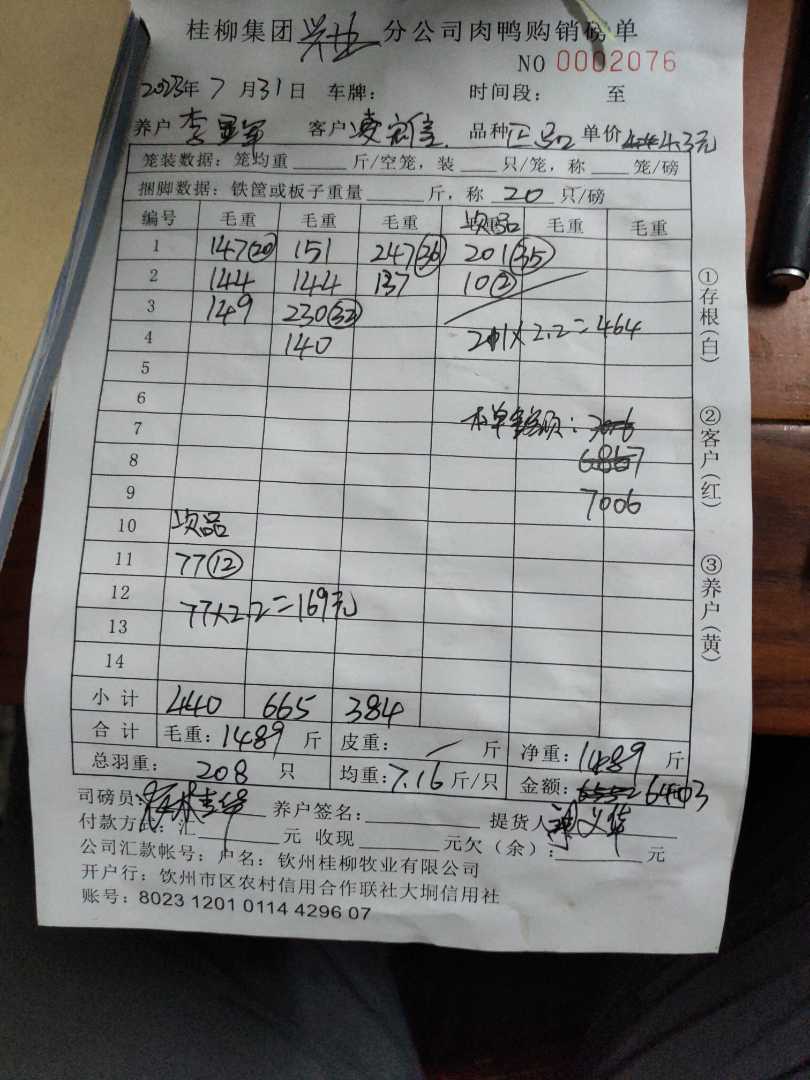 桂柳集团兴业分公司肉鸭购销磅单
NO 0002076
2023年 7 月 31 日 车牌: 时间段: 至
养户 李 军 客户 品种 正品 单价 4.3元
笼装数据: 笼均重 斤/空笼, 装 只/笼, 称 笼/磅
捆脚数据: 铁筐或板子重量 斤, 称 20 只/磅
编号 毛重 毛重 毛重 项品 毛重 毛重
1 147(20) 151 247(36) 201(35)
2 144 144 137 10(2)
3 149 230(32)
4 140 211×2.2=464
5
6
7 本单金额: 3076
8 6867
9 7006
10 项品
11 77(12)
12 77×2.2=169元
13
14
小计 440 665 384
合计 毛重: 1489 斤 皮重: / 斤 净重: 1489 斤
总羽重: 208 只 均重: 7.16 斤/只 金额: 6403
司磅员: 养户签名: 提货人
付款方式: 汇 元 收现 元欠(余): 元
公司汇款帐号: 户名: 钦州桂柳牧业有限公司
开户行: 钦州市区农村信用合作联社大垌信用社
账号: 8023 1201 0114 4296 07
①存根(白)
②客户(红)
③养户(黄)